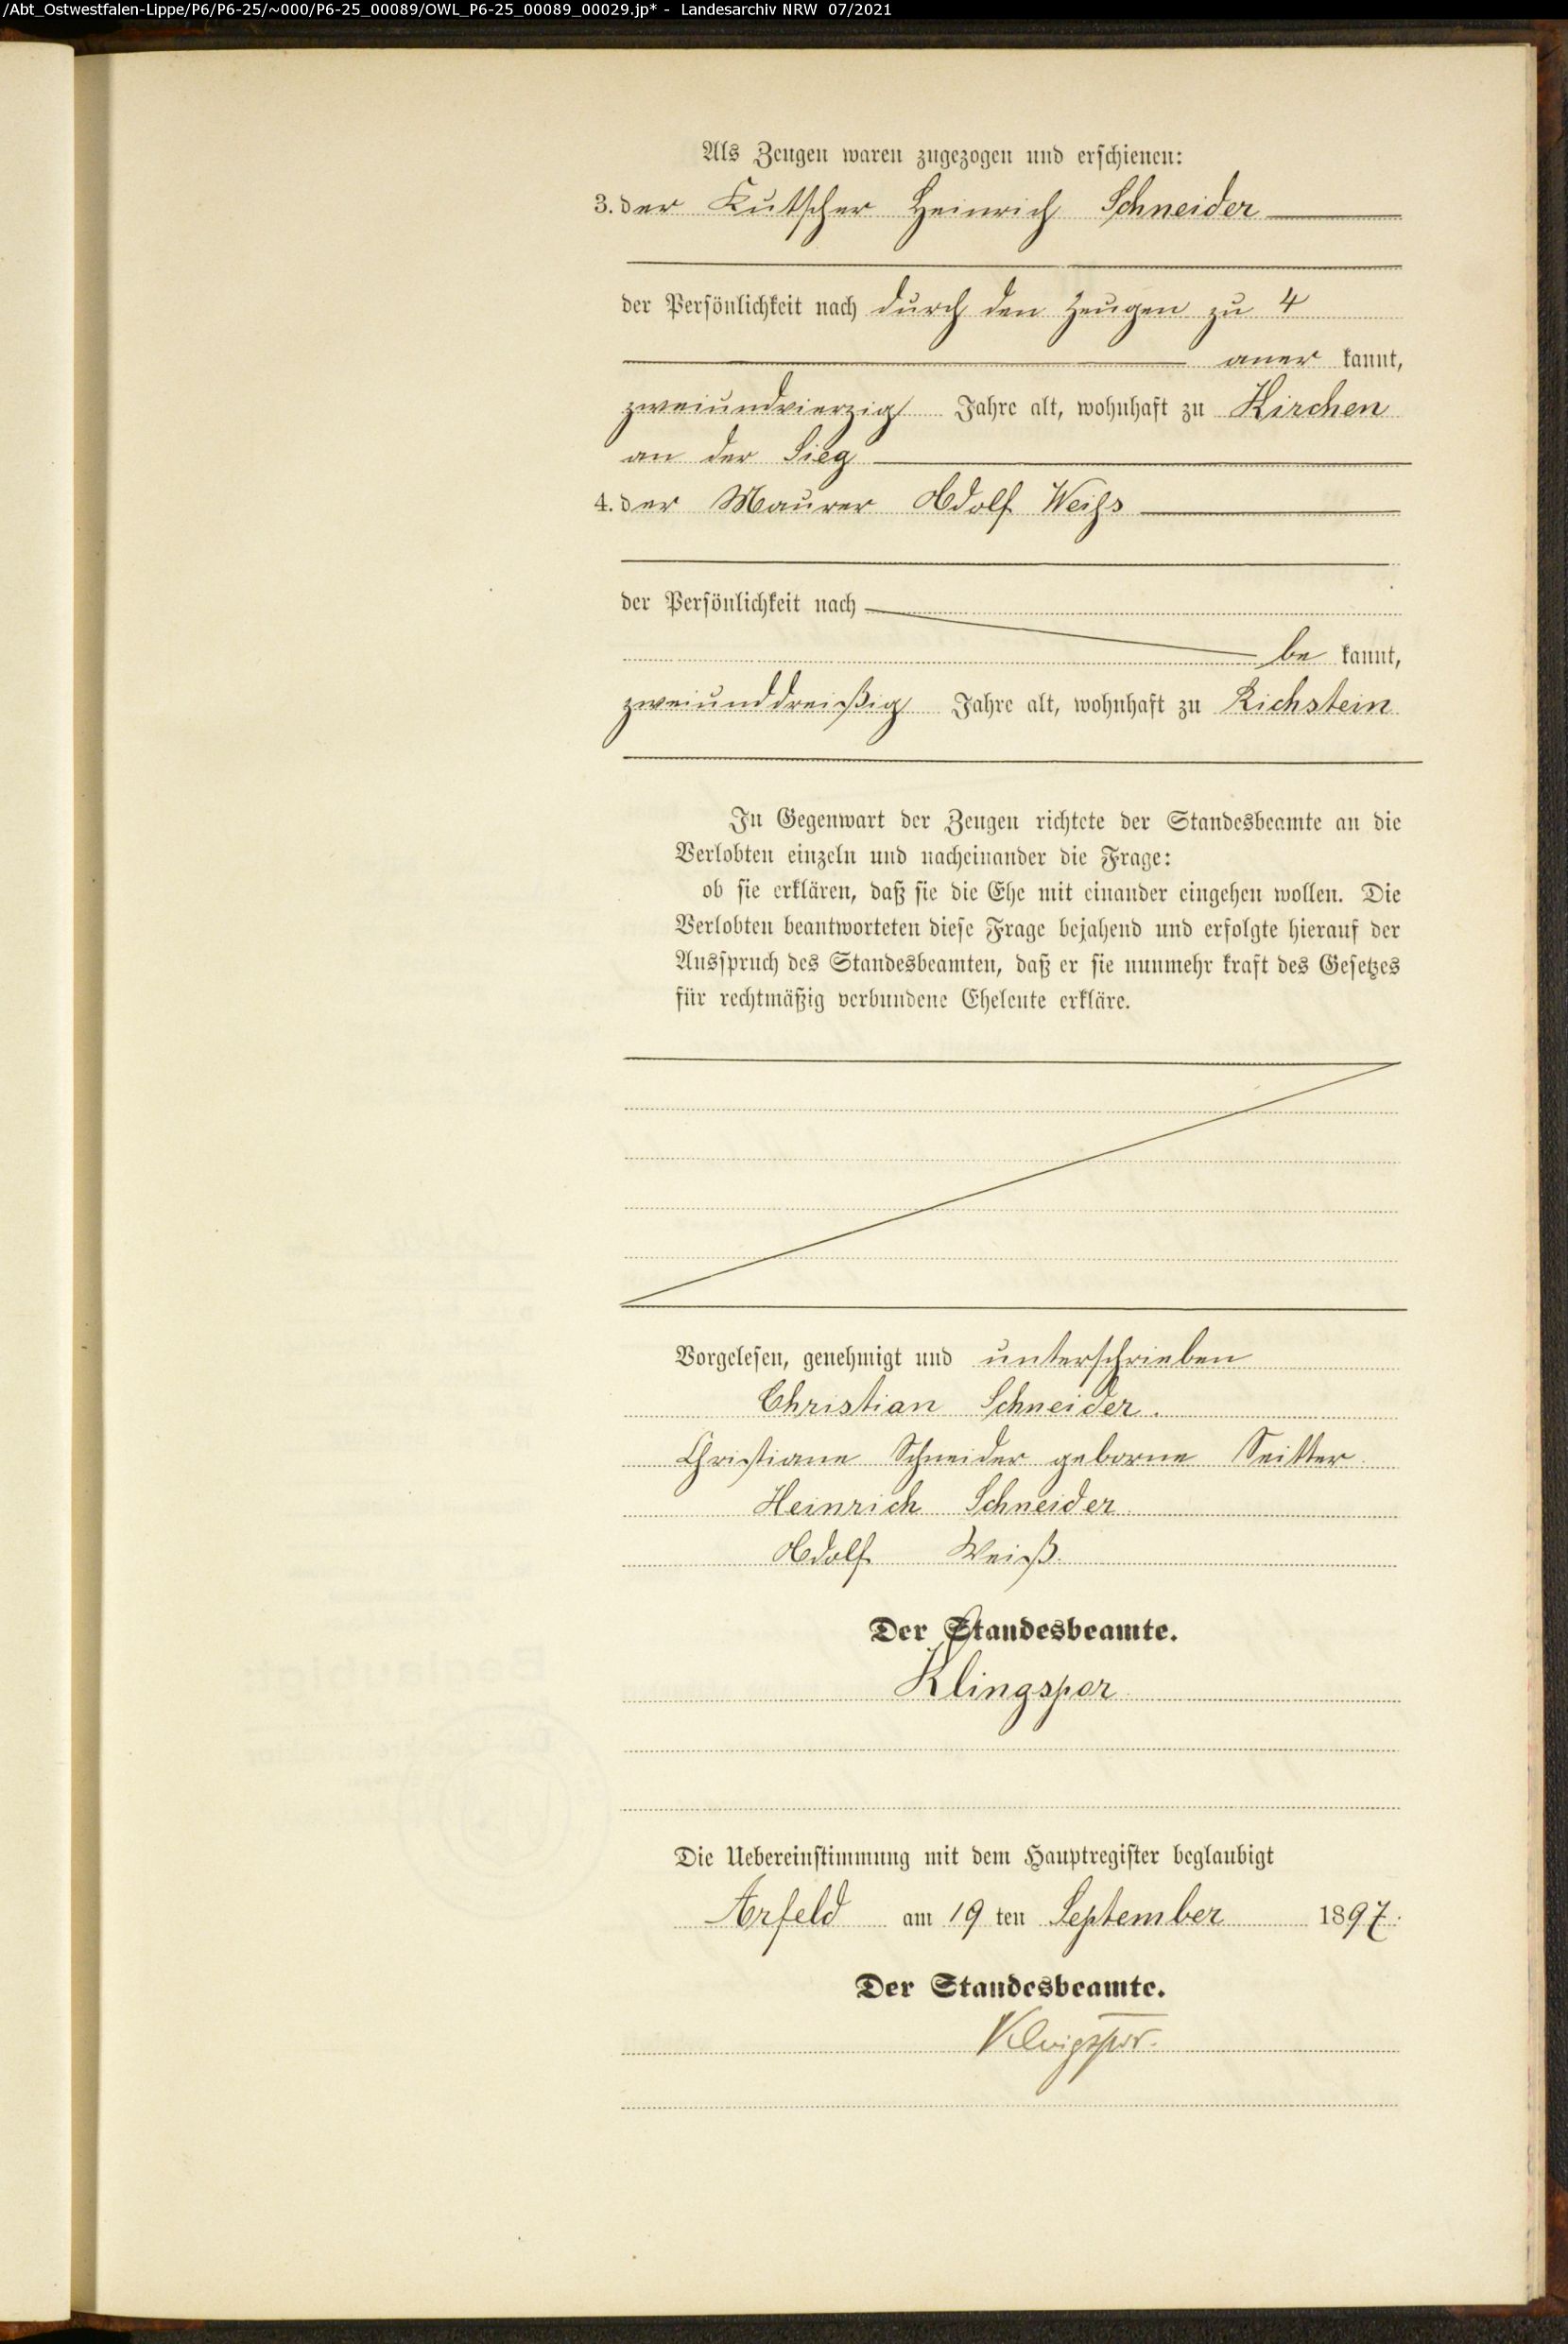 /Abt_Ostwestfalen-Lippe/P6/P6-25/~000/P6-25_00089/OWL_P6-25_00089_00029.jp* - Landesarchiv NRW 07/2021
Als Zeugen waren zugezogen und erschienen:
3. der Kutscher Heinrich Schneider
der Persönlichkeit nach durch den Zeugen zu 4
aner kannt,
zweiundvierzig Jahre alt, wohnhaft zu Kirchen
an der Sieg
4. der Maurer Adolf Weihs
der Persönlichkeit nach
be kannt,
zweiunddreißig Jahre alt, wohnhaft zu Richstein
In Gegenwart der Zeugen richtete der Standesbeamte an die
Verlobten einzeln und nacheinander die Frage:
ob sie erklären, daß sie die Ehe mit einander eingehen wollen. Die
Verlobten beantworteten diese Frage bejahend und erfolgte hierauf der
Ausspruch des Standesbeamten, daß er sie nunmehr kraft des Gesetzes
für rechtmäßig verbundene Eheleute erkläre.
Vorgelesen, genehmigt und unterschrieben
Christian Schneider.
Christiane Schneider geborne Seitter.
Heinrich Schneider
Adolf Weiß.
Der Standesbeamte.
Klingspor
Die Uebereinstimmung mit dem Hauptregister beglaubigt
Arfeld am 19 ten September 1897.
Der Standesbeamte.
Klingspor.